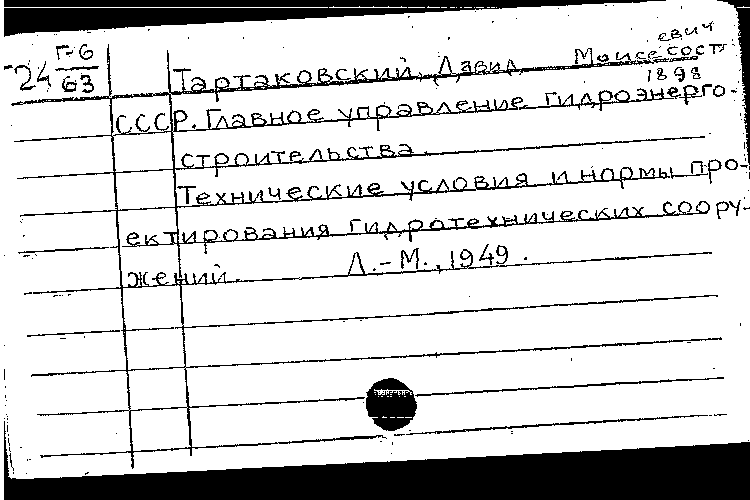 евич
Г-6
24 63
Тартаковский, Давид Моисе сост.
1898
СССР. Главное управление гидроэнерго-
строительства.
Технические условия и нормы про-
ектирования гидротехнических соору-
жений. Л.-М., 1949.